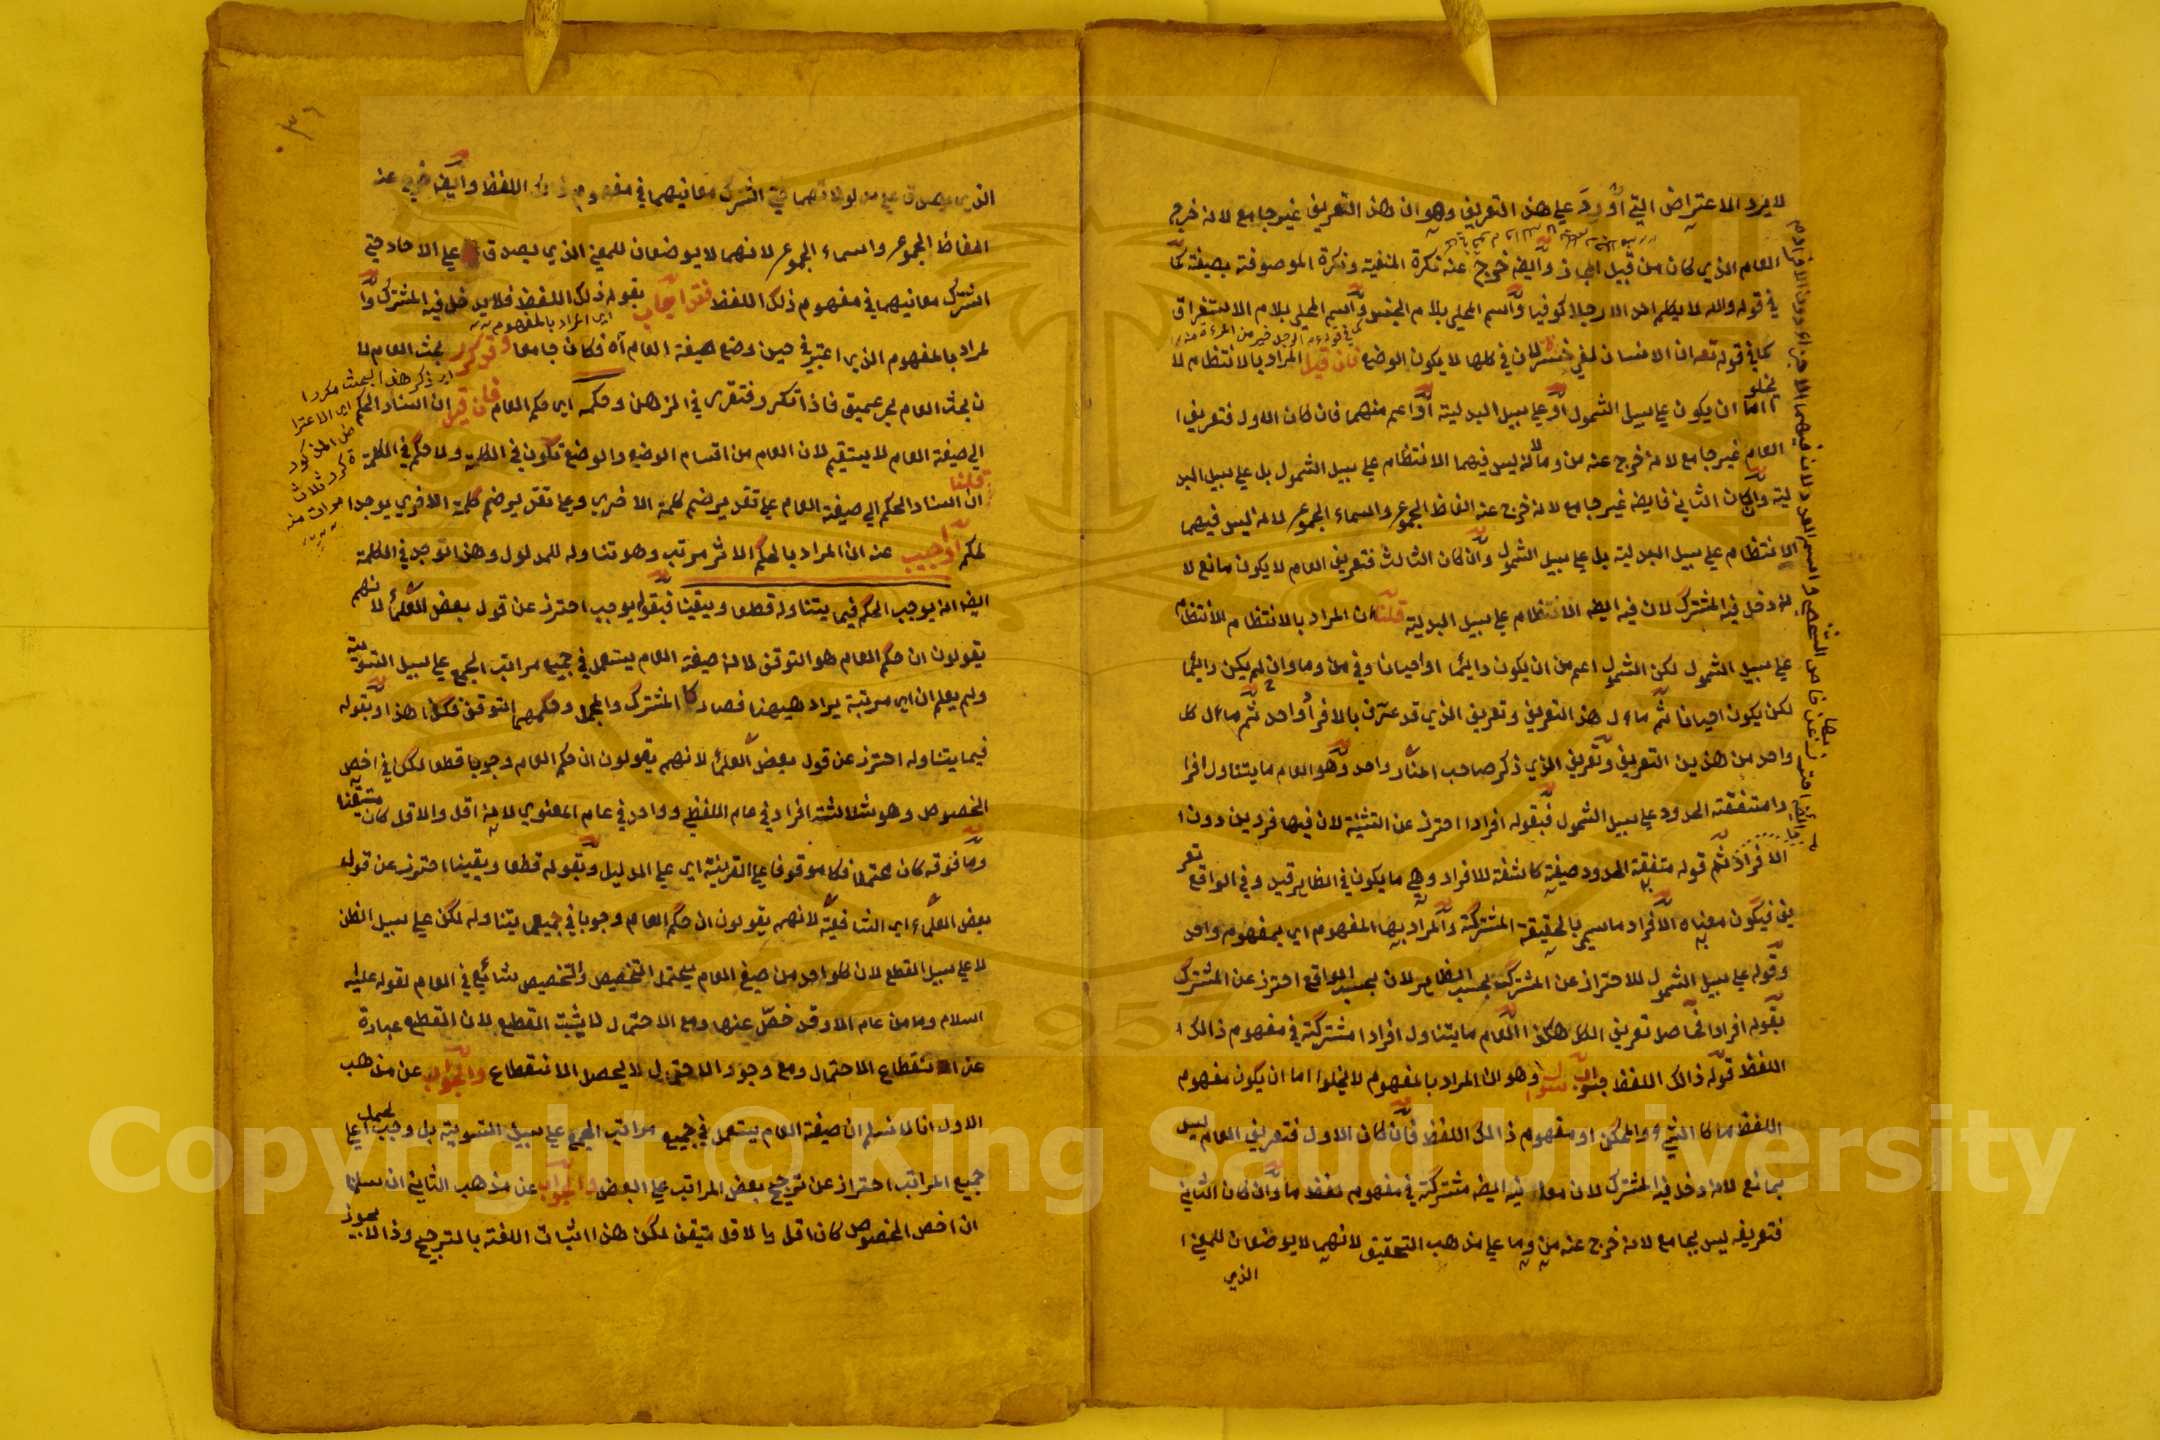 لا يرد الاعتراض التي أورد على هذا التعريف وهو ان هذا التعريف غير جامع لانه خرج
العام الذي كان من قبيل المجاز وايضا خرج عنه نكرة المنفية ونكرة الموصوفة بصفة كما
في قوله والله لا يكلم احدا الا رجلا كوفيا واسم المحلى بلام الجنس واسم المحلى بلام الاستغراق
كما في قوله تعه ان الانسان لفي خسر لان في كلها لا يكون الوضع فان قيل المراد بالانتظام لا
يخلوا
اما ان يكون على سبيل الشمول او على سبيل البدلية او اعم منهما فان كان الاول فتعريف ا
العام غير جامع لانه خرج عنه من وما لانه ليس فيهما الانتظام على سبيل الشمول بل على سبيل البد
لية وان كان الثاني فايضا غير جامع لانه خرج عنه الفاظ الجموع واسماء الجموع لانه ليس فيهما
الانتظام على سبيل البدلية بل على سبيل الشمول وان كان الثالث فتعريف العام لا يكون مانع لا
نه دخل فيه المشترك لان فيه ايضا الانتظام على سبيل البدلية قلنا ان المراد بالانتظام الانتظام
على سبيل الشمول لكن الشمول اعم من ان يكون دائما او احيانا وفي من وما وان لم يكن دائما
لكن يكون احيانا ثم مآل هذا التعريف وتعريف الذي قد عرف بالافراد واحد ثم مآل كل
واحد من هذين التعريف وتعريف الذي ذكر صاحب المنار واحد وهو العام ما يتناول افرا
دا متفقة الحدود على سبيل الشمول فبقوله افرادا احترز عن التثنية لان فيها فردين دون ا
الافراد ثم قوله متفقة الحدود صفة كاشفة للافراد وهي ما يكون في الظاهر قيد وفي الواقع تعر
يف فيكون معناه الافراد ما سمي بالحقيقة المشتركة والمراد بها المفهوم اي بمفهوم واحد
وقوله على سبيل الشمول للاحتراز عن المشترك بحسب الظاهر لان بحسب الواقع احترز عن المشترك
بقوله افرادا فحاصل تعريف الكل هكذا العام ما يتناول افرادا مشتركة في مفهوم ذالك ا
اللفظ قوله ذالك اللفظ جواب سوال وهو ان المراد بالمفهوم لا يخلوا اما ان يكون مفهوم
اللفظ ما كالشيء والممكن او مفهوم ذالك اللفظ فان كان الاول فتعريف العام ليس
بمانع لانه دخل فيه المشترك لان معانيه ايضا مشتركة في مفهوم لفظ ما وان كان الثاني
فتعريفه ليس بجامع لانه خرج عنه من وما على مذهب التحقيق لانهما لا يوضعان للمعنى ا
الذي
٣٦
الذي يصدق على مدلولاتهما حتى اشترك معانيهما في مفهوم ذلك اللفظ وايضا خرج عنه
الفاظ الجموع واسماء الجموع لانهما لا يوضعان للمعنى الذي يصدق على الاحاد حتى
اشترك معانيهما في مفهوم ذلك اللفظ فقد اجاب بقوله ذلك اللفظ فلا يدخل فيه المشترك وا
اي المراد بالمفهوم
لمراد بالمفهوم الذي اعتبر في حين وضع صيغة العام آه فكان جامعا وقد كرر بحث العام لا
اي ذكر هذا البحث مكررا
ن بحث العام بحر عميق فاذا تكرر فتقرر في الذهن وحكمه اي حكم العام فان قيل ان اسناد الحكم
اي الاعترا
ض المذكور
الى صيغة العام لا يستقيم لان العام من اقسام الوضع والوضع تكون في الكلمة ولا حكم في الكلمة
ذكر ثلاث
مرات منه
قلنا
ان اسناد الحكم الى صيغة العام على تقدير ضم كلمة الاخرى وعلى تقدير ضم كلمة الاخرى يوجد ا
لحكم او اجيب عنه ان المراد بالحكم الاثر مرتب وهو تناوله للمدلول وهذا توجد في الكلمة
ايضا انه يوجب الحكم فيما يتناوله قطعا ويقينا فبقوله يوجب احترز عن قول بعض العلماء لانهم
يقولون ان حكم العام هو التوقف لان صيغة العام يستعمل في جميع مراتب الجمع على سبيل التسوية
ولم يعلم ان اي مرتبة يراد ههنا فصار كالمشترك والمجمل وحكمهما التوقف فكذا هذا وبقوله
فيما يتناوله احترز عن قول بعض العلماء لانهم يقولون ان حكم العام وجوبا قطعا لكن في اخص
الخصوص وهو ثلاثة افراد في عام اللفظي وواحد في عام المعنوي لانه اقل والاقل كان متيقنا
وما فوقه كان محتملا فكا موقوفا على القرينة اي على الدليل وبقوله قطعا ويقينا احترز عن قول
بعض العلماء اي الشافعية لانهم يقولون ان حكم العام وجوبا في جميع ما يتناوله لكن على سبيل الظن
لا على سبيل القطع لان كل واحد من صيغ العام يحتمل التخصيص والتخصيص شائع في العام لقوله عليه
السلام وما من عام الا وقد خص عنه ومع الاحتمال لا يثبت القطع لان القطع عبارة
عن انقطاع الاحتمال ومع وجود الاحتمال لا يحصل الانقطاع والجواب عن مذهب
الاول انا لا نسلم ان صيغة العام يستعمل في جميع مراتب الجمع على سبيل التسوية بل وجب لحمل على
جميع المراتب احتراز عن ترجيح بعض المراتب على البعض والجواب عن مذهب الثاني ان سلمنا
ان اخص الخصوص كان اقل والاقل متيقن لكن هذا اثبات اللغة بالترجيح وذا لا يجوز
Copyright © King Saud University
1957